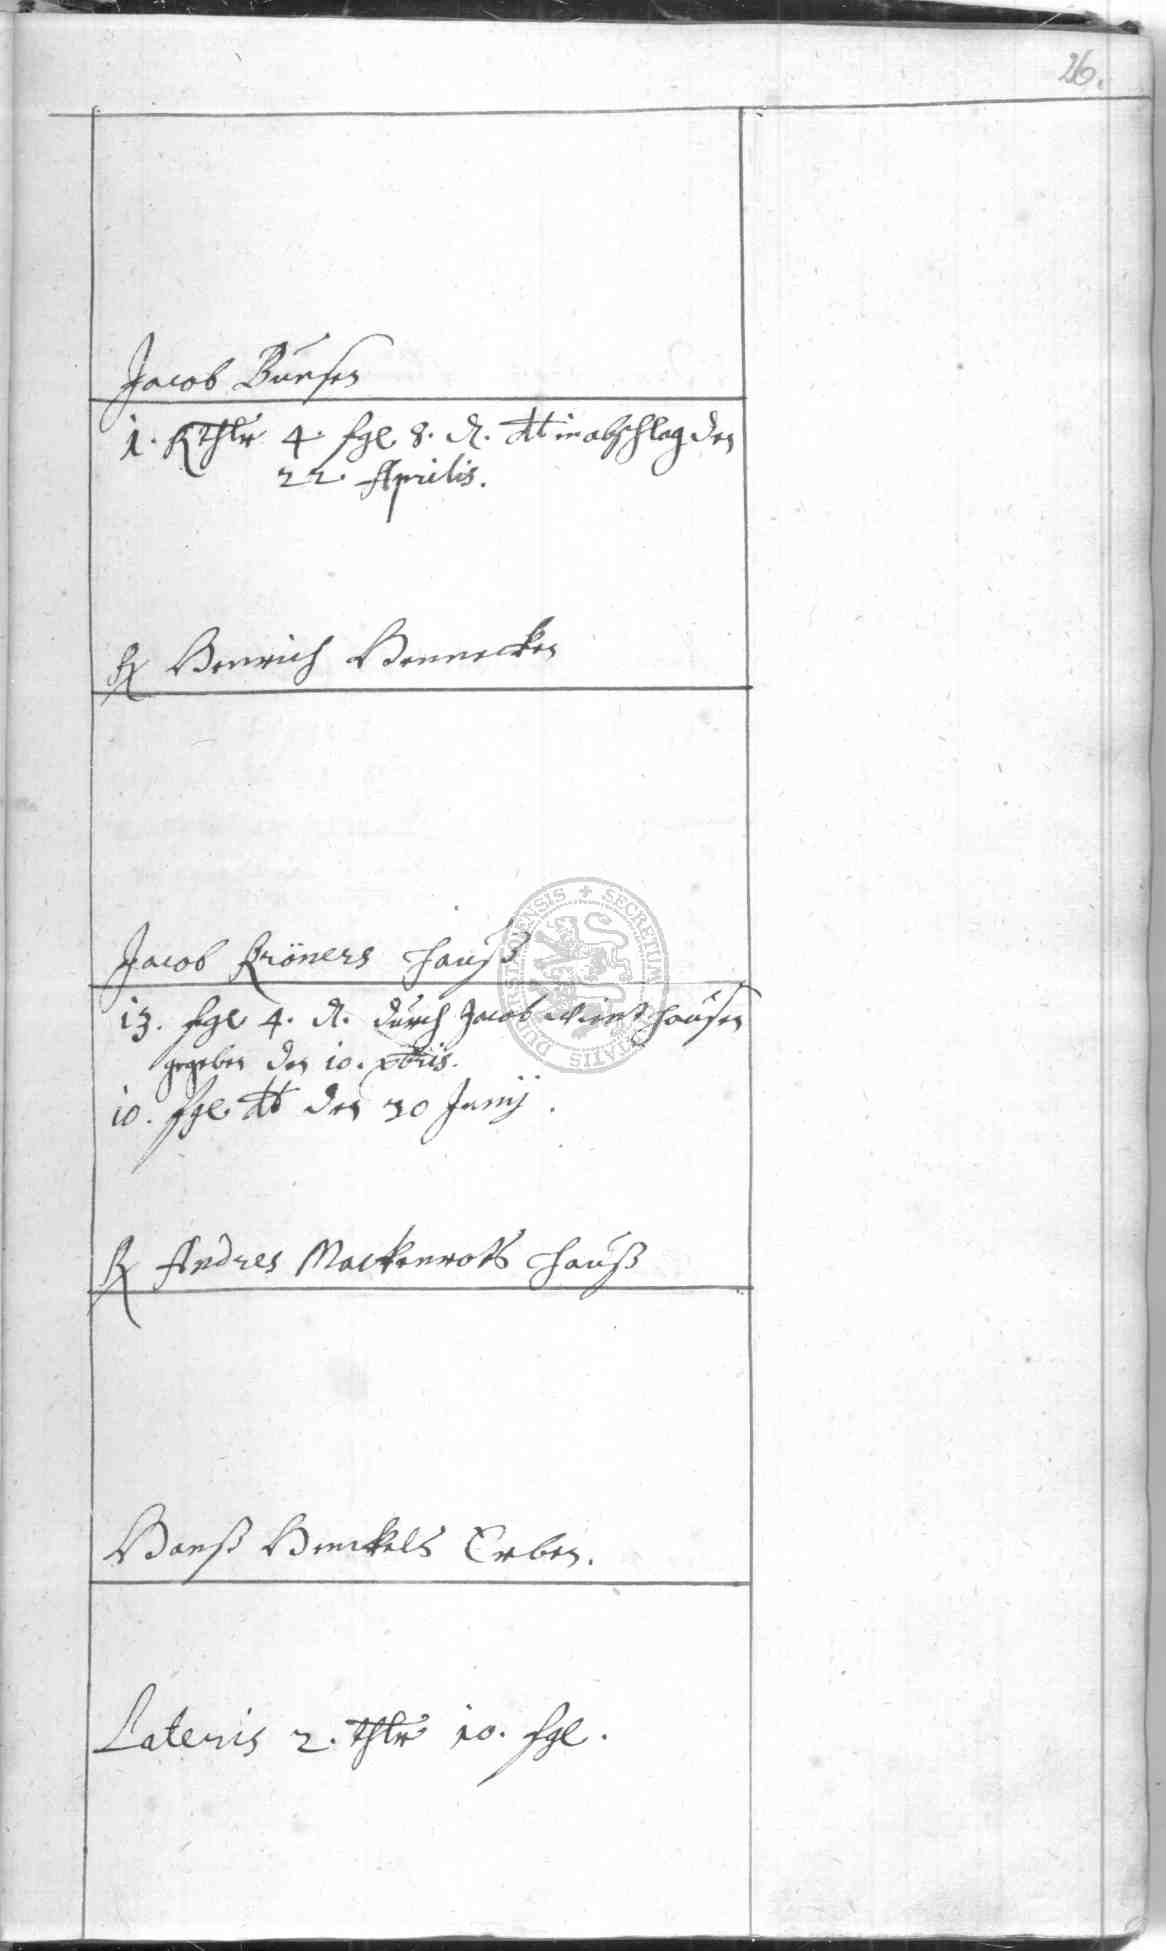 26.
Jacob Bursen
1. Rthlr 4. sgl 8. d. dt in abschlag den
22. Aprilis.
Henrich Hennecken
Jacob Kröners Hauß
13. sgl 4. d. durch Jacob Wint hausen
gegeben den 10. xbris.
10. sgl dt den 30 Junij.
Andres Mackenrots Hauß
Hanß Henckels Erben.
Lateris 2. thlr 10. sgl.
SECRETUM